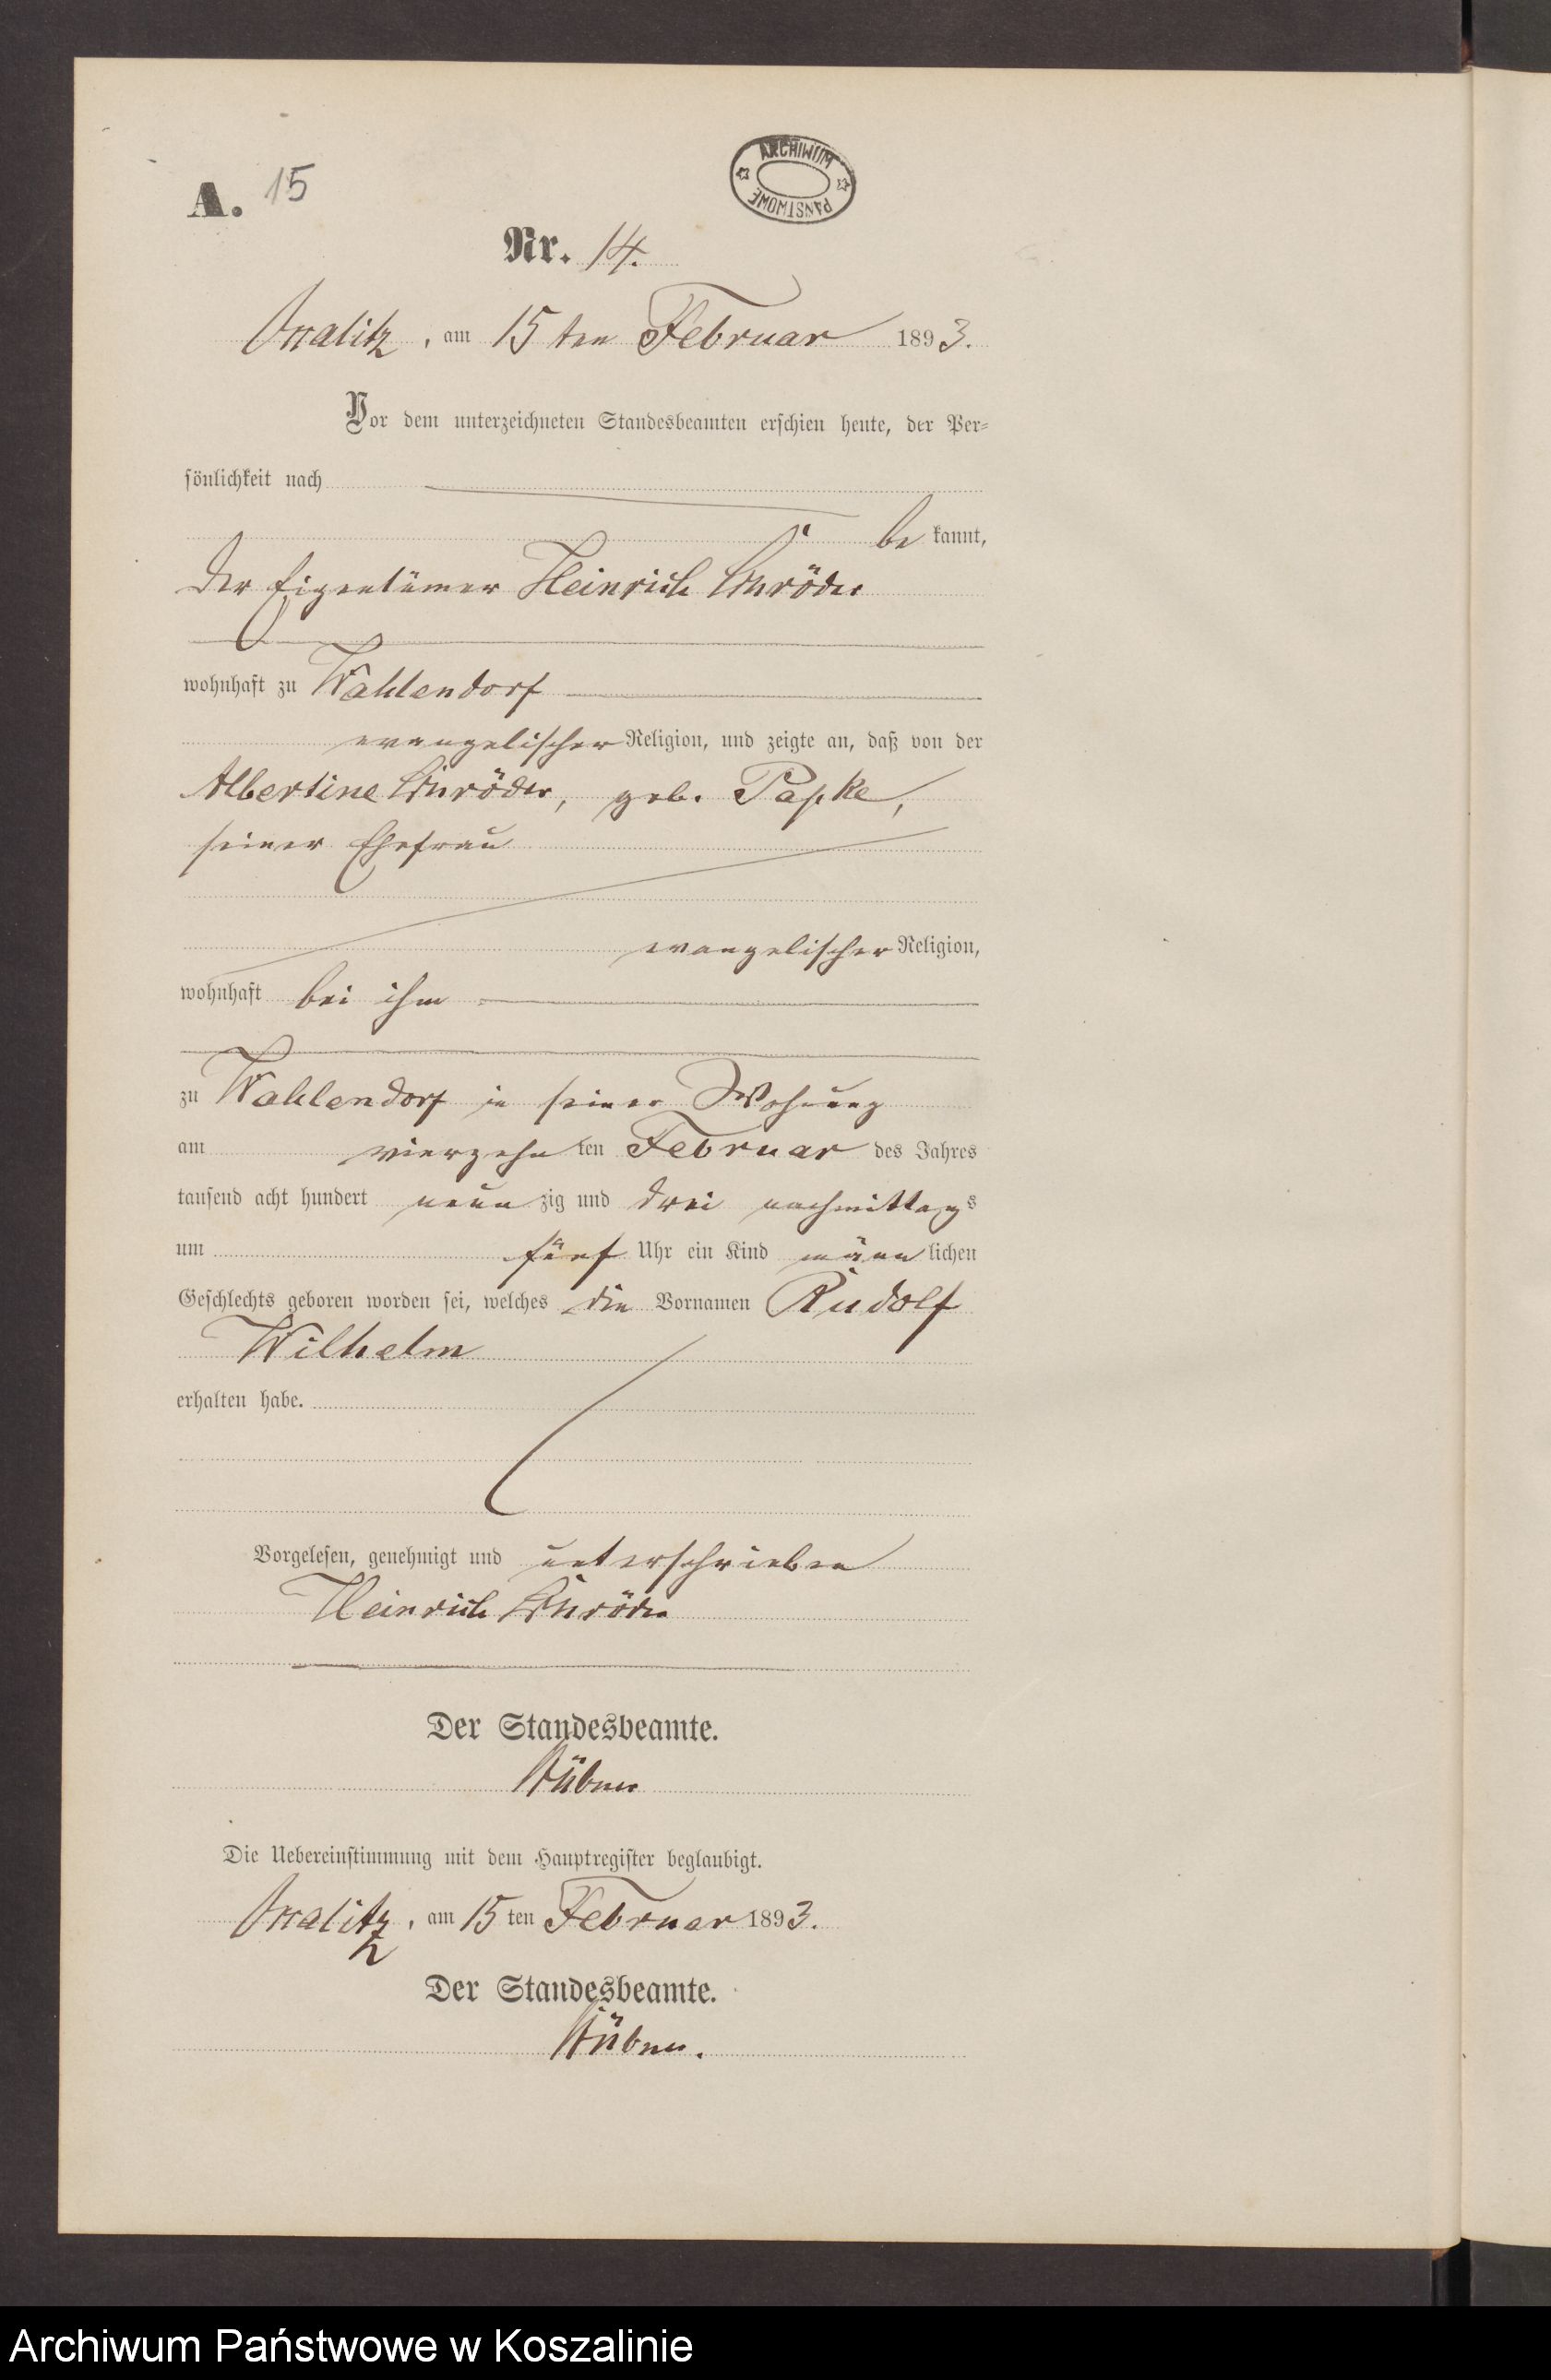 ARCHIWUM
PAŃSTWOWE
A. 15
Nr. 14.
am 15 ten Februar 1893.
Vor dem unterzeichneten Standesbeamten erschien heute, der Per-
sönlichkeit nach
be kannt,
der Eigentümer Heinrich Schröder
wohnhaft zu Wahlendorf
evangelischer Religion, und zeigte an, daß von der
Albertine Schröder, geb. Papke,
seiner Ehefrau
evangelischer Religion,
wohnhaft bei ihm
zu Wahlendorf in seiner Wohnung
am vierzehn ten Februar des Jahres
tausend acht hundert neun zig und drei nachmittags
um fünf Uhr ein Kind männ lichen
Geschlechts geboren worden sei, welches die Vornamen Rudolf
Wilhelm
erhalten habe.
Vorgelesen, genehmigt und unterschrieben
Heinrich Schröder
Der Standesbeamte.
Die Uebereinstimmung mit dem Hauptregister beglaubigt.
am 15 ten Februar 1893.
Der Standesbeamte.
Archiwum Państwowe w Koszalinie